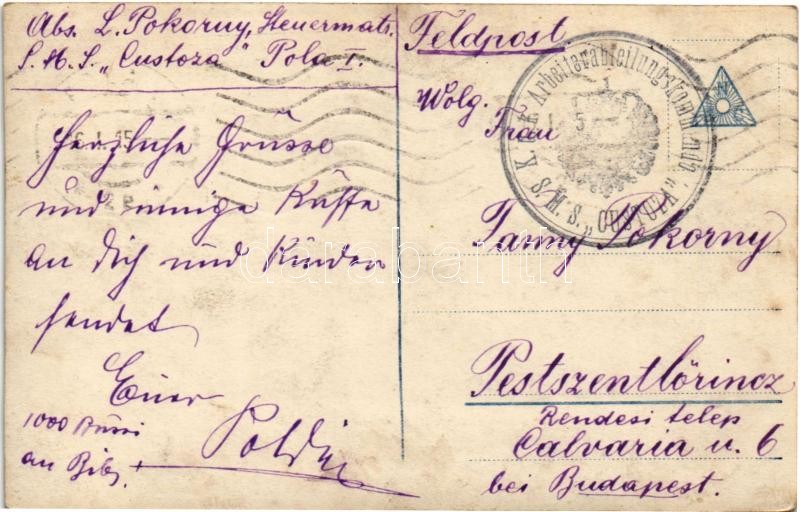 Abs. L. Pokorny, Steuermats.
S. M. S. „Custoza" Pola I.
Herzliche Grüsse
und innige Küsse
an Dich und Kinder
sendet
Euer
Poldi
1000 Bussi
an Bibi
Feldpost
Wolg.
Frau
Fanny Pokorny
Pestszentlőrincz
Rendesi telep
Calvaria u. 6
bei Budapest.
K.u.K. Arbeiterabteilungskommando
S.M.S. „CUSTOZA"
darabanth